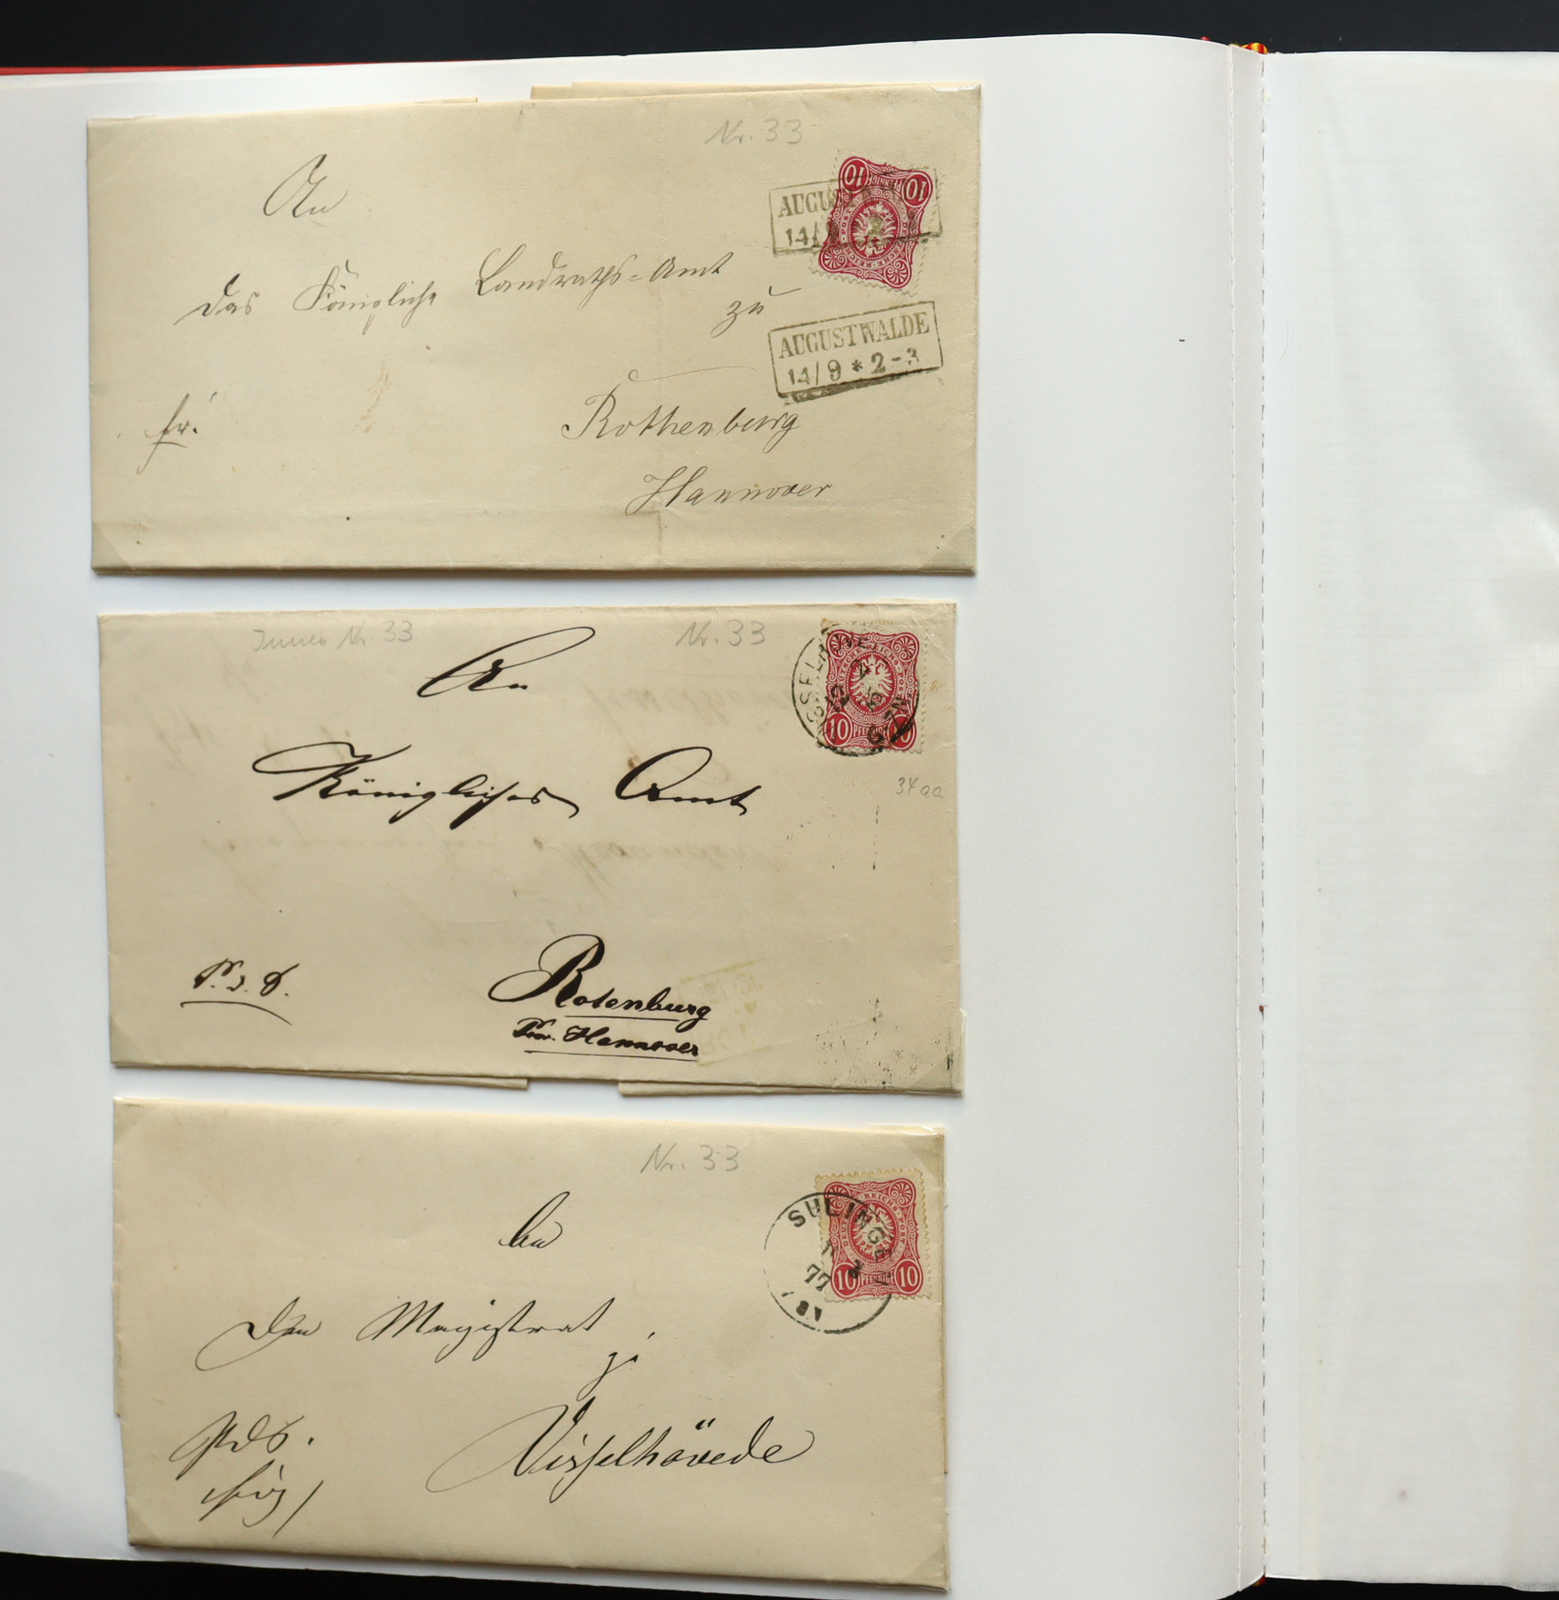 Nr. 33
An
das Königliche Landraths-Amt
zu
AUGUSTWALDE
14/9 * 2-3
fr.
Rothenburg
Hannover
Nr. 33
Nr. 33
10 PFENNIG
34 aa
An
Königliches Amt
P. s. d.
Rotenburg
Prov. Hannover
Nr. 33
SULINGEN
77
10 PFENNIG 10
An
Den Magistrat
z.
Visselhövede